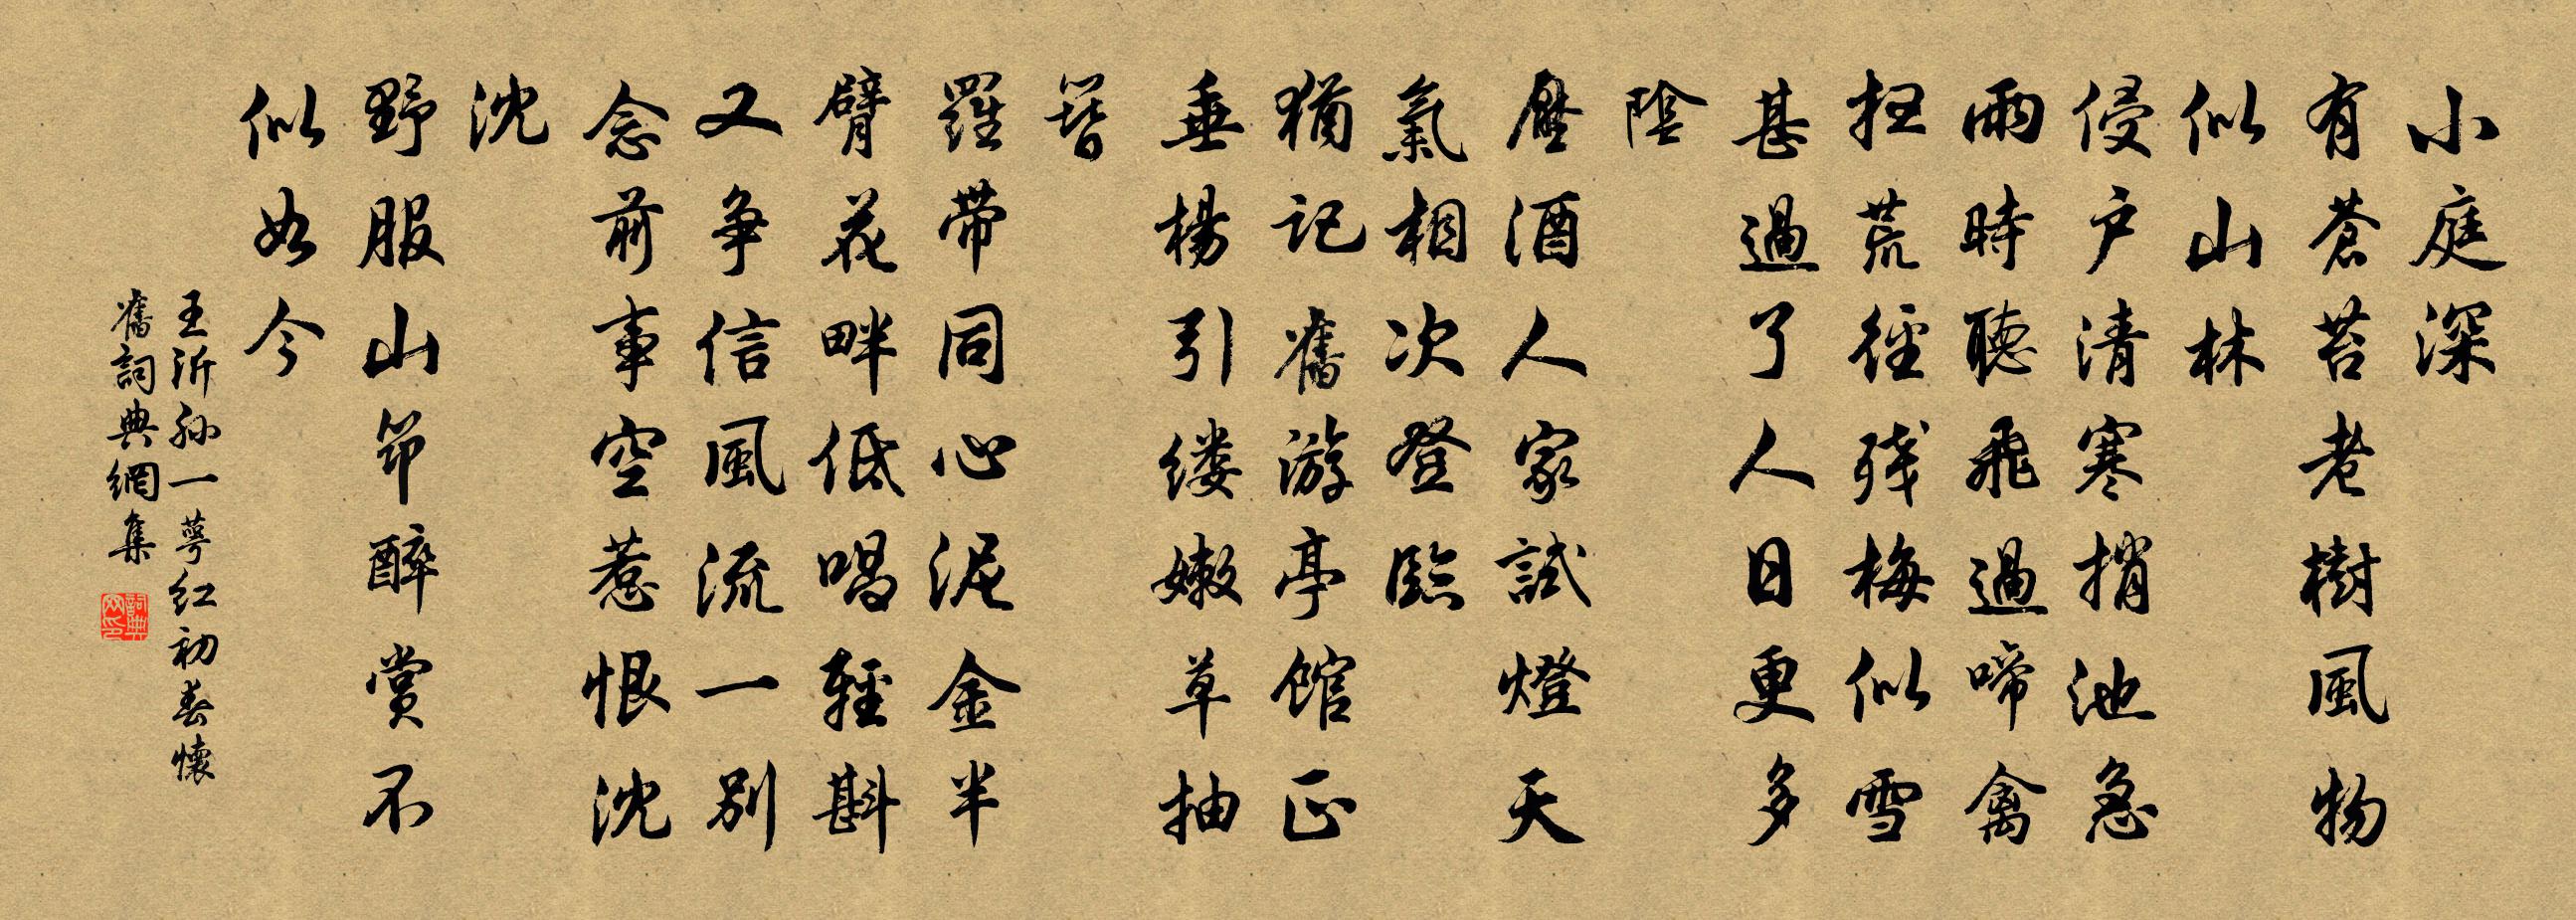 小庭深
有蒼苔老樹風物
似山林
侵户清寒捎池急
雨時聽飛過啼禽
扫荒徑残梅似雪
甚過了人日更多
陰
壓酒人家試燈天
氣相次登臨
猶記舊游亭館正
垂楊引缕嫩草抽
簪
羅带同心泥金半
臂花畔低唱輕斟
又争信風流一别
念前事空惹恨沈
沈
野服山笻醉賞不
似如今
王沂孙一萼红初春懷
舊詞典網集
詞典網印